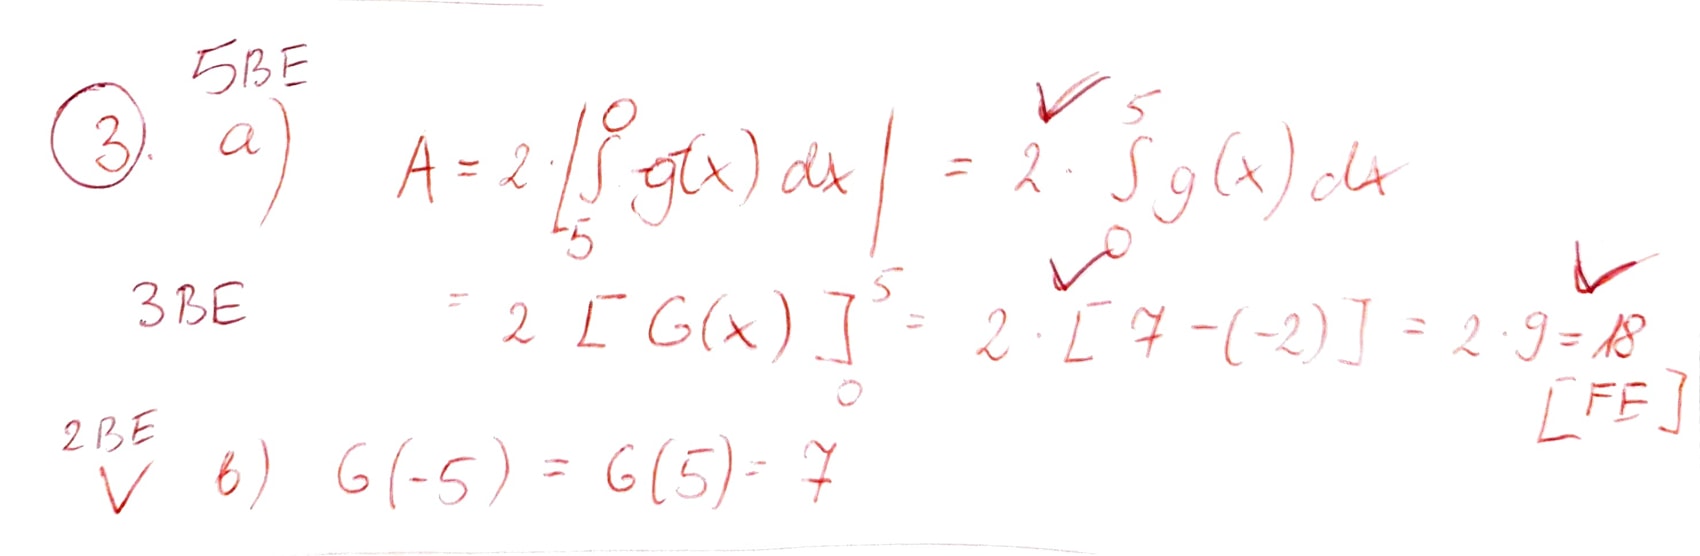 5BE
3. a) A = 2·|∫₅⁰ g(x) dx| = 2· ∫₀⁵ g(x) dx
3BE = 2 [G(x)]₀⁵ = 2·[7-(-2)] = 2·9=18
[FE]
2BE
b) G(-5) = G(5) = 7